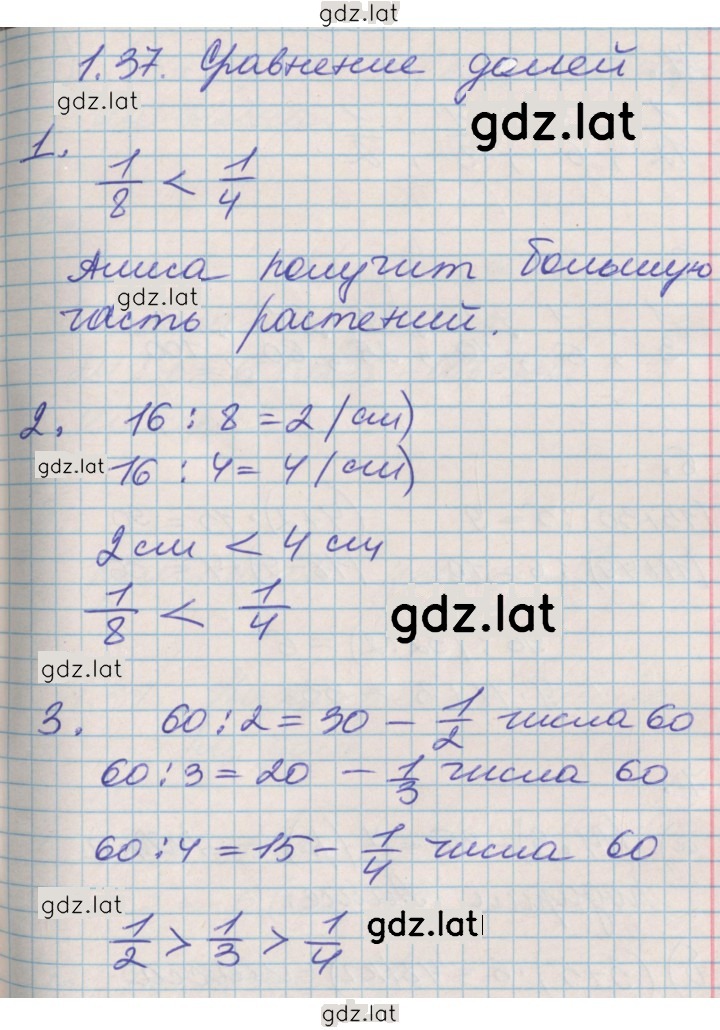 gdz.lat
1.37. Сравнение долей
gdz.lat
gdz.lat
1.
1/8 < 1/4
Алиса получит большую
gdz.lat
часть растений.
2. 16 : 8 = 2 (см)
gdz.lat
16 : 4 = 4 (см)
2 см < 4 см
1/8 < 1/4
gdz.lat
gdz.lat
3. 60 : 2 = 30 – 1/2 числа 60
60 : 3 = 20 – 1/3 числа 60
60 : 4 = 15 – 1/4 числа 60
gdz.lat
1/2 > 1/3 > 1/4
gdz.lat
gdz.lat